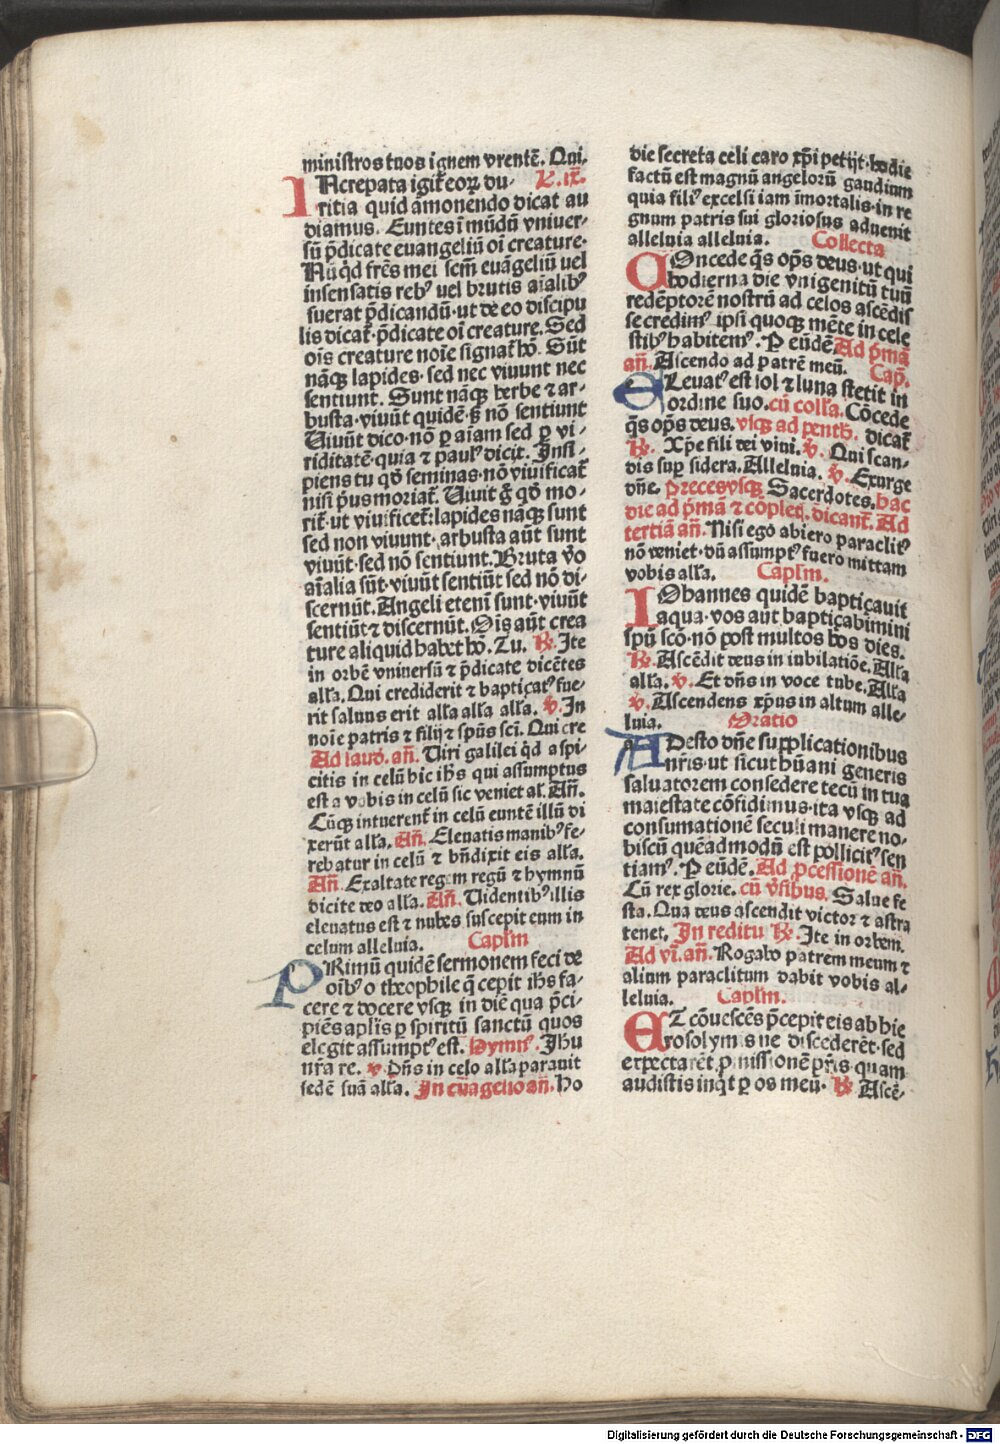 ministros tuos ignem vrentē. Qui.
INcrepata igit᷑ eoꝝ du- L. ix̄.
ritia quid āmonendo dicat au
diamus. Euntes ī mūdū vniuer-
sū p̄dicate euangeliū oī creature.
Nūq̄d frēs mei sem̄ euāgeliū uel
insensatis reb⁹ uel brutis aīalib⁹
fuerat p̄dicandū. ut de eo discipu
lis dicat᷑. p̄dicate oī creature. Sed
oīs creature noīe signat᷑ hō. Sūt
nāqꝫ lapides. sed nec viuunt nec
sentiunt. Sunt nāqꝫ herbe ⁊ ar-
busta. viuūt quidē. sꝫ nō sentiunt
Uiuūt dico. nō ꝑ aīam sed ꝑ vi-
riditatē. quia ⁊ paul⁹ dicit. Insi-
piens tu qd̄ seminas. nō viuificat᷑
nisi p̄us moriat᷑. Uiuit g̊ qd̄ mo-
rit᷑. ut viuificet᷑: lapides naqꝫ sunt
sed non viuunt. arbusta aūt sunt
viuūt. sed nō sentiunt. Bruta v̊o
aīalia sūt. viuūt sentiūt sed nō di-
scernūt. Angeli eteni sunt. viuūt
sentiūt ⁊ discernūt. Oīs aūt crea
ture aliquid habet hō. Tu. ℟. Ite
in orbē vniuersū ⁊ p̄dicate dicētes
alľa. Qui crediderit ⁊ baptiçat⁹ fue-
rit saluus erit alľa alľa alľa. ℣. In
noīe patris ⁊ filij ⁊ spūs sc̄i. Qui cre
Ad laud. an̄. Uiri galilei qd̄ aspi
citis in celū hic ihs qui assumptus
est a vobis in celū sic veniet aľ. An̄.
Cūqꝫ intuerent᷑ in celū euntē illū di
xerūt alľa. An̄. Eleuatis manib⁹ fe-
rebatur in celū ⁊ bn̄dixit eis alľa.
An̄. Exaltate regem regū ⁊ hymnū
dicite deo alľa. An̄. Uidentib⁹ illis
eleuatus est ⁊ nubes suscepit eum in
celum alleluia. Capľm
PRimū quidē sermonem feci de
oīb⁹ o theophile q̄ cepit ihs fa-
cere ⁊ docere vsqꝫ in diē qua p̄ci-
piēs aplīs ꝑ spiritū sanctū quos
elegit assumpt⁹ est. Hymn⁹. Ihu
nr̄a re. ℣. Dn̄s in celo alľa parauit
sedē suā alľa. In euāgelio an̄. Ho
die secreta celi caro xp̄i petijt. hodie
factū est magnū angelorū gaudium
quia fili⁹ excelsi iam īmortalis. in re
gnum patris sui gloriosus aduenit
alleluia alleluia. Collecta
COncede qs̄ op̄s deus. ut qui
hodierna die vnigenitū tuū
redēptorē nostrū ad celos ascēdis
se credim⁹ ipsi quoqꝫ mēte in cele
stib⁹ habitem⁹. P eūdē Ad p̄mā
an̄. Ascendo ad patrē meū. Cap̄.
ELeuat⁹ est sol ⁊ luna stetit in
ordine suo. cū colľa. Cōcede
qs̄ op̄s deus. vsqꝫ ad penth̄. dicat᷑
℟. Xp̄e fili dei viui. ℣. Qui scan-
dis suꝑ sidera. Alleluia. ℣. Exurge
dn̄e. Preces vsqꝫ Sacerdotes. hac
die ad p̄mā ⁊ cōpleꝉ. dicant᷑. Ad
tertiā an̄. Nisi ego abiero paraclit⁹
nō veniet. dū assumpt⁹ fuero mittam
vobis alľa. Capľm.
IOhannes quidē baptiçauit
aqua. vos aut baptiçabimini
spū scō. nō post multos hos dies.
℟. Ascēdit deus in iubilatiōe. Alľa
alľa. ℣. Et dn̄s in voce tube. Alľa
℣. Ascendens xp̄us in altum alle-
luia. Oratio
ADesto dn̄e supplicationibus
nr̄is. ut sicut hūani generis
saluatorem consedere tecū in tua
maiestate cōfidimus. ita vsqꝫ ad
consumationē seculi manere no-
biscū quēadmodū est pollicit⁹ sen
tiam⁹. P eundē. Ad p̄cessionē an̄.
Cū rex glorie. cū v̄sibus. Salue fe
sta. Qua deus ascendit victor ⁊ astra
tenet. In reditu ℟. Ite in orbem.
Ad vi. an̄. Rogabo patrem meum ⁊
alium paraclitum dabit vobis al-
leluia. Capľm.
ET cōuescēs p̄cepit eis ab hie
rosolymis ne discederēt. sed
expectarēt ꝓmissionē pr̄is quam
audistis inq̇t ꝑ os meū. ℟ Ascē-
Digitalisierung gefördert durch die Deutsche Forschungsgemeinschaft - DFG